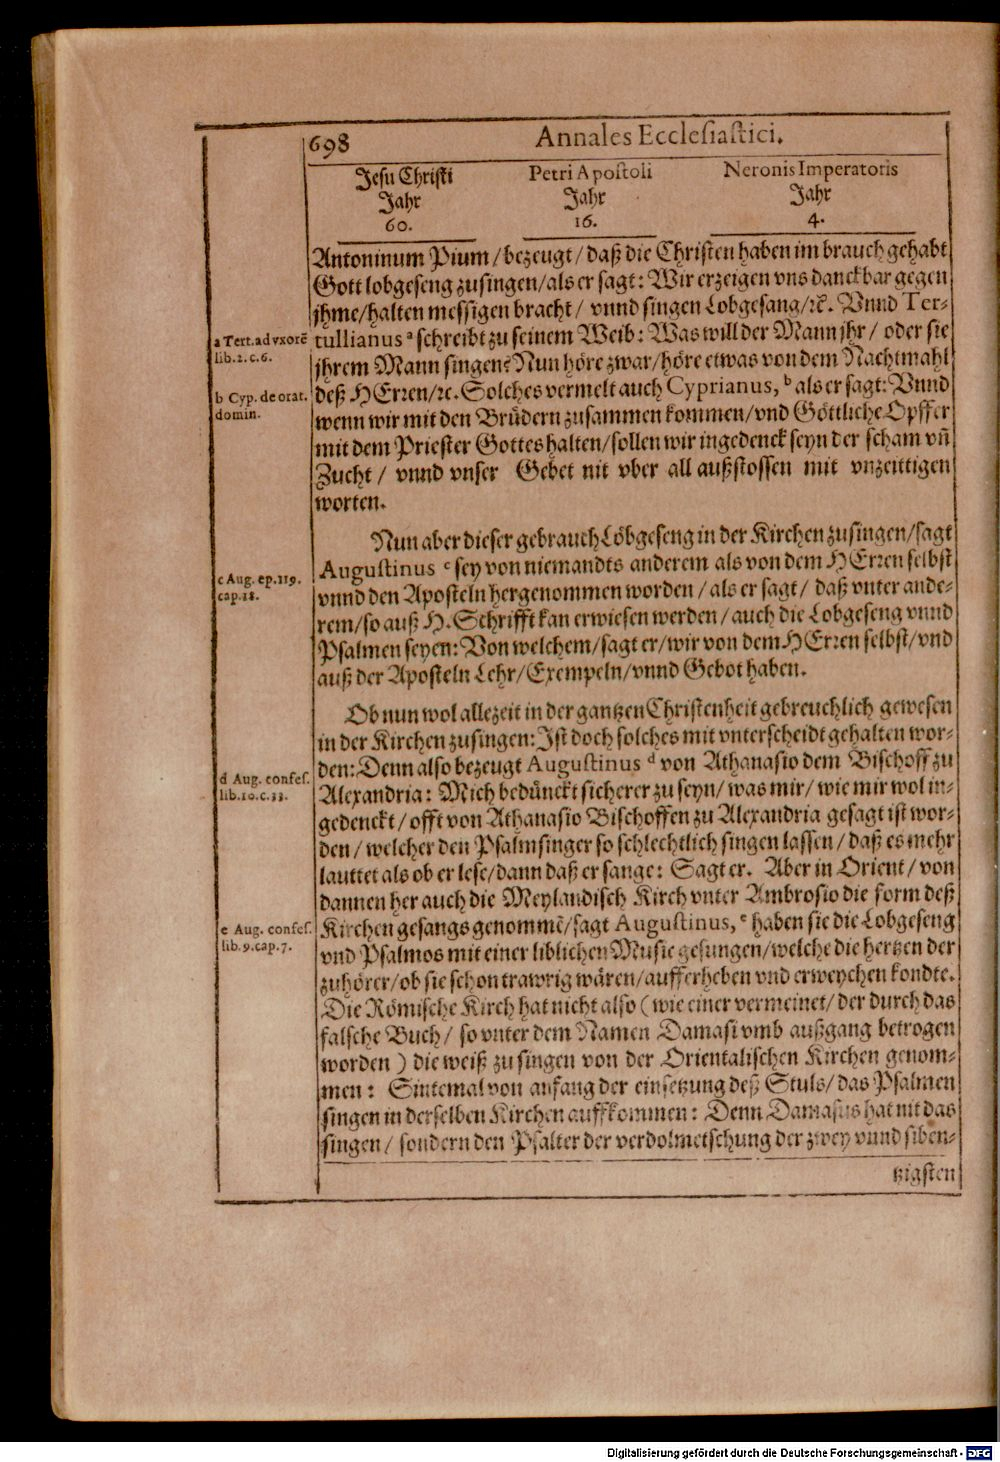 698 Annales Ecclesiastici.
Jesu Christi Petri Apostoli Neronis Imperatoris
Jahr Jahr Jahr
60. 16. 4.
Antoninum Pium / bezeugt / daß die Christen haben im brauch gehabt
Gott lobgeseng zusingen / als er sagt: Wir erzeigen vns danckbar gegen
jhme / halten messigen bracht / vnnd singen Lobgesang / ꝛc. Vnnd Ter-
tullianus a schreibt zu seinem Weib: Was will der Mann jhr / oder sie
jhrem Mann singen? Nun höre zwar / höre etwas von dem Nachtmahl
deß HErꝛen / ꝛc. Solches vermelt auch Cyprianus, b als er sagt: Vnnd
wenn wir mit den Brüdern zusammen kommen / vnd Göttliche Opffer
mit dem Priester Gottes halten / sollen wir ingedenck seyn der scham vñ
Zucht / vnnd vnser Gebet nit vber all außstossen mit vnzeittigen
worten.
a Tert. ad vxorẽ
lib. 2. c. 6.
b Cyp. de orat.
domin.
Nun aber dieser gebrauch Löbgeseng in der Kirchen zusingen / sagt
Augustinus c sey von niemandts anderem als von dem HErꝛen selbst
vnnd den Aposteln hergenommen worden / als er sagt / daß vnter ande-
rem / so auß H. Schrifft kan erwiesen werden / auch die Lobgeseng vnnd
Psalmen seyen: Von welchem / sagt er / wir von dem HErꝛen selbst / vnd
auß der Aposteln Lehr / Exempeln / vnnd Gebot haben.
c Aug. ep. 119.
cap. 18.
Ob nun wol allezeit in der gantzen Christenheit gebreuchlich gewesen
in der Kirchen zusingen: Ist doch solches mit vnterscheidt gehalten wor-
den: Denn also bezeugt Augustinus d von Athanasio dem Bischoff zu
Alexandria: Mich bedünckt sicherer zu seyn / was mir / wie mir wol in-
gedenckt / offt von Athanasio Bischoffen zu Alexandria gesagt ist wor-
den / welcher den Psalmsinger so schlechtlich singen lassen / daß es mehr
lauttet als ob er lese / dann daß er sange: Sagt er. Aber in Orient / von
dannen her auch die Meylandisch Kirch vnter Ambrosio die form deß
Kirchen gesangs genommẽ / sagt Augustinus, e haben sie die Lobgeseng
vnd Psalmos mit einer liblichen Music gesungen / welche die hertzen der
zuhörer / ob sie schon trawrig wären / aufferheben vnd erweychen kondte.
Die Römische Kirch hat nicht also ( wie einer vermeinet / der durch das
falsche Buch / so vnter dem Namen Damasi vmb außgang betrogen
worden ) die weiß zu singen von der Orientalischen Kirchen genom-
men: Sintemal von anfang der einsetzung deß Stuls / das Psalmen
singen in derselben Kirchen auffkommen: Denn Damasus hat nit das
singen / sondern den Psalter der verdolmetschung der zwey vnnd siben-
tzigsten
d Aug. confes.
lib. 10. c. 33.
e Aug. confes.
lib. 9. cap. 7.
Digitalisierung gefördert durch die Deutsche Forschungsgemeinschaft - DFG